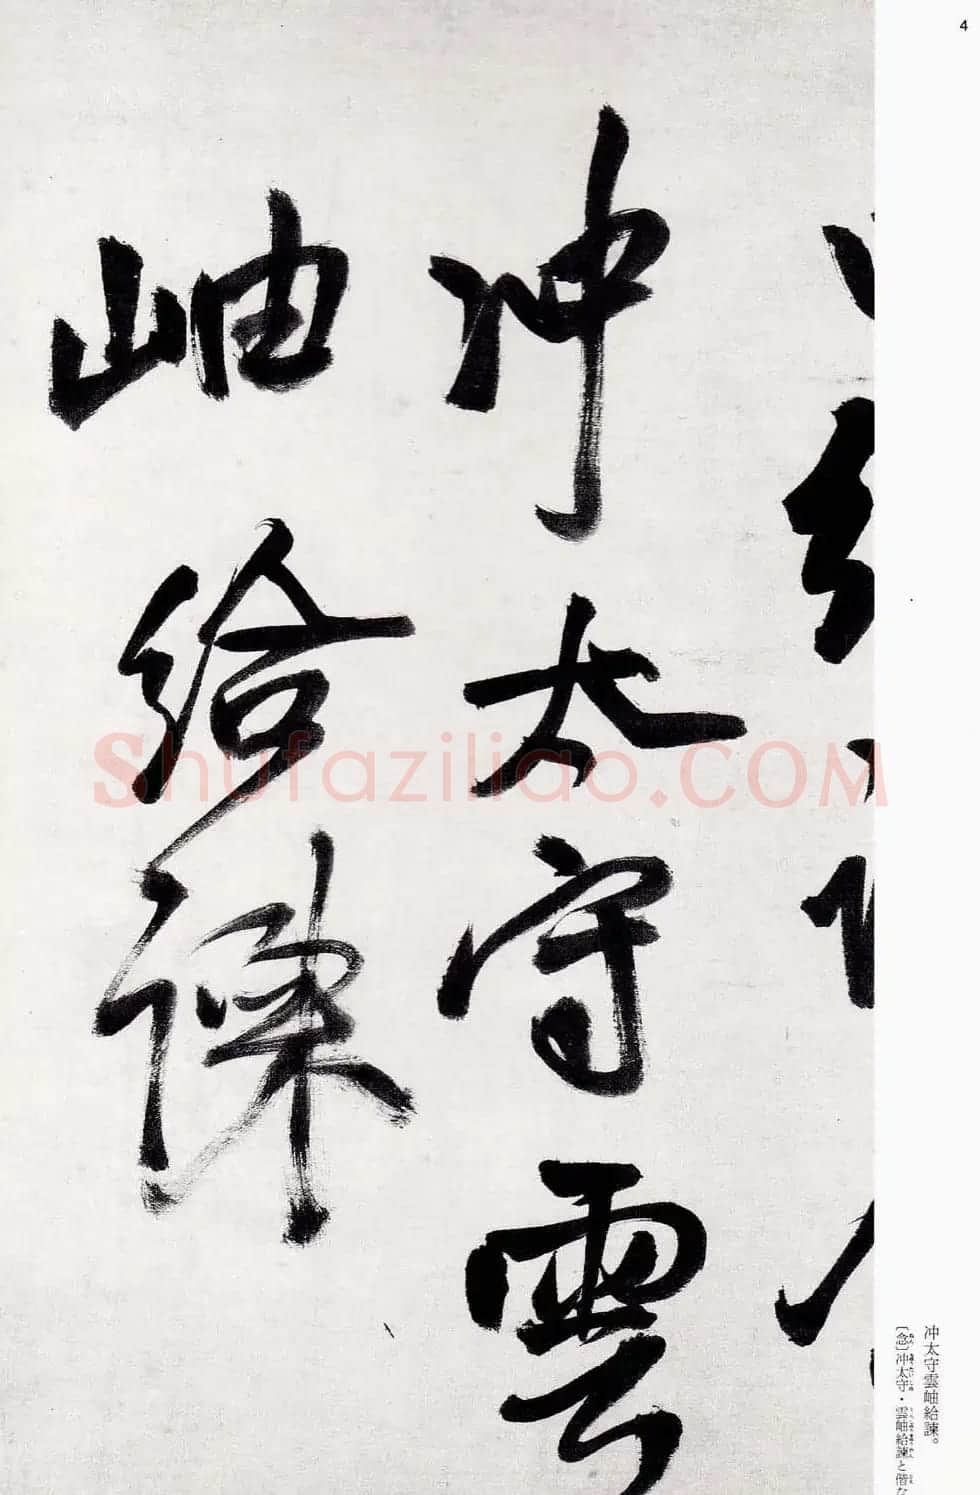 4
冲太守雲
岫給諫
Shufaziliao.COM
冲太守雲岫給諫。
〔念〕冲太守・雲岫給諫と偕な